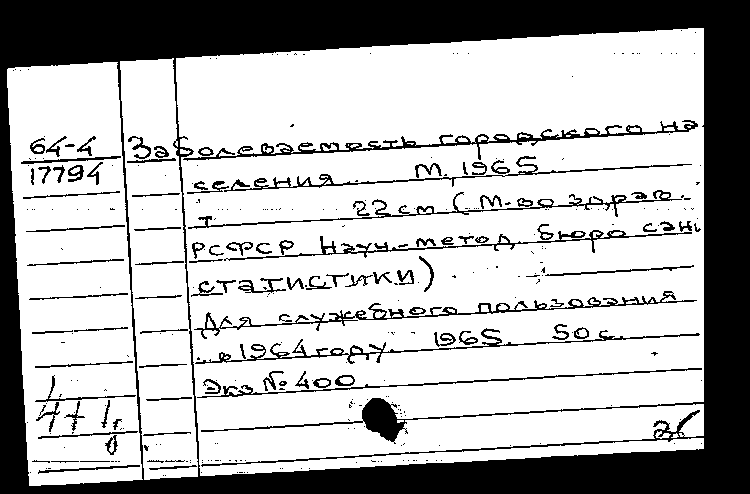 64-4
17794
Заболеваемость городского на-
селения... М., 1965.
т 22 см (М-во здрав.
РСФСР. Науч.-метод. бюро сан.
статистики)
Для служебного пользования
.. в 1964 году. 1965. 50 с.
Экз. № 400.